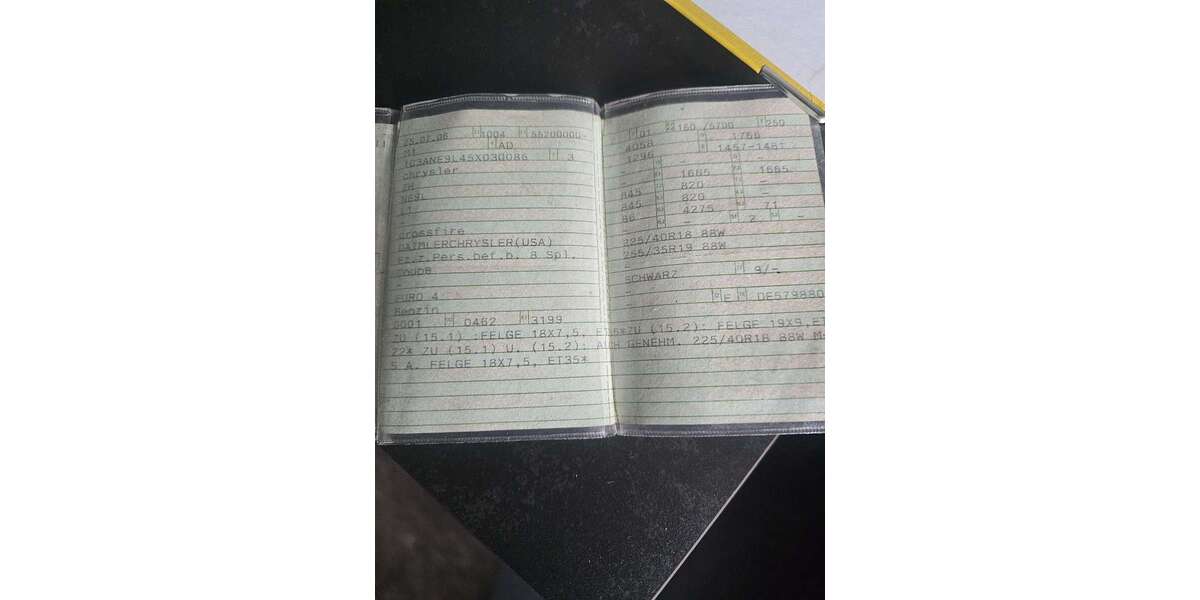 25.01.06 1004 55200000-
M1 AD
1C3ANE9L45X030086 3
chrysler
ZH
NE9L
L17
-
Crossfire
DAIMLERCHRYSLER(USA)
Fz.z.Pers.bef.b. 8 Spl.
Coupe
-
EURO 4
Benzin
0001 0462 3199
ZU (15.1) :FELGE 18X7,5, *ZU (15.2): FELGE 19X9,ET
22* ZU (15.1) U. (15.2): AUCH GENEHM. 225/40R18 88W M+
S A. FELGE 18X7,5, ET35*
01 160 /5700 250
4058 - 1766
1296 - 1457-1481
- 1665 - 1665
845 820 -
845 820 -
86 4275 71
- 2 -
225/40R18 88W
255/35R19 88W
SCHWARZ 9/-
-
E DE579880